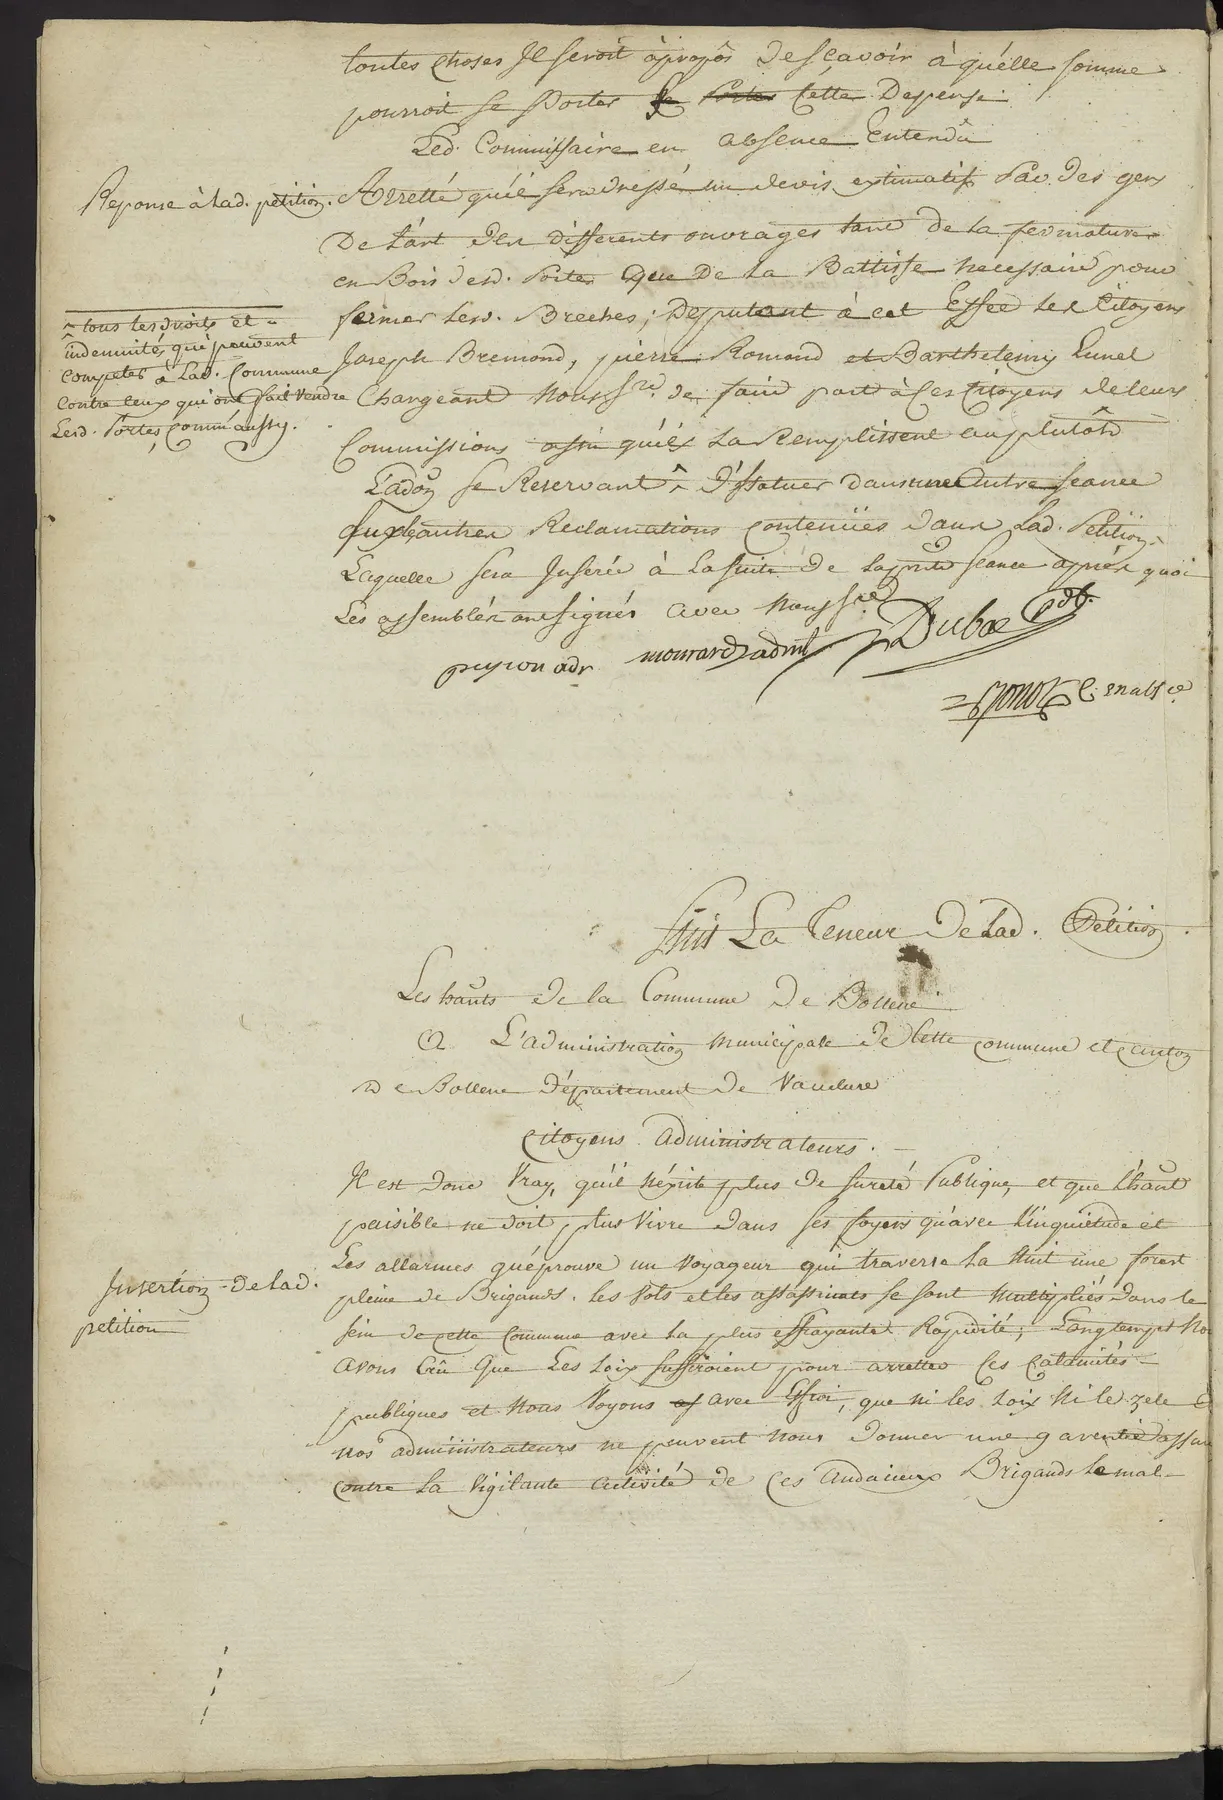 toutes choses Il seroit àpropôs desçavoir à quélle somme
pourroit se Porter Cette Depense
Led. Commissaire en absence Entendû
Reponse à Lad. petition.
Arretté qu'il sera dressé un devis estimatif Par Des gens
De l'art des differents ouvrages tant de la fermature
en Bois desd. Portes Que De La Battisse necessaire pour
fermer lesd. Breches; Deputant à cet Effet les Citoyens
Joseph Bremond, pierre Romand et Barthelemy Lunel
Chargeant nousd. Sre. de faire part à Ces Citoyens deleurs
Commissions affin qu'ils La Remplissent auplutôt
L'adon se Reservant ^ d'statuer dansune Autre seance
sur les autres Reclamations contenües dans Lad. Petition
Laquelle sera Inserée à Lasuite de La pnte seance après quoi
Les assemblés ont signés avec nousd. Sre
^ tous les droits et
indemnités qui peuvent
competer à Lad. Commune
contre ceux qui ont fait vendre
Lesd. Portes, comm'aussy.
peyron adr mourard admt Dubac Pdt.
C. en abs ce
Suit La Teneur De Lad. Petition.
Les hauts de la Commune De Bollene
A L'administration municipale de Cette commune et canton
de Bollene Département de Vaucluse
Citoyens administrateurs.
Il est donc Vray, qu'il néxiste plus de sureté Publique, et que l'hant
paisible ne doit plus Vivre dans ses foyers qu'avec l'inquietude et
Les allarmes qu'éprouve un Voyageur qui traverse la Nuit une forest
Insertion de Lad.
petition
pleine de Brigands. les Vols et les assassinats se sont multipliés dans le
sein de cette Commune avec la plus effrayante Rapidité; Longtempt No
avons Crû Que Les Loix suffiroient pour arretter Ces Calamités
publiques et nous Voyons avec Effroi, que ni les Loix Ni le zele
nos administrateurs ne peuvent nous donner une garentie
contre la Vigilante activité de Ces audacieux Brigands le mal-